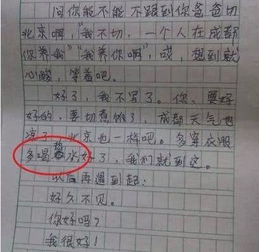 问你能不能不跟到你爸爸切
北京啊，"我不切，一个人在成都
你养我""我养你啊"，或，想到就
心酸，等着吧。
好了，我不写了。你、要好
好的，要切煮饭了，成都天气也
凉了，北京也一样吧。多穿衣服
多喝水好了，我们就到这。
以后再遇到起：
好久不见。
你好吗？
我很好！